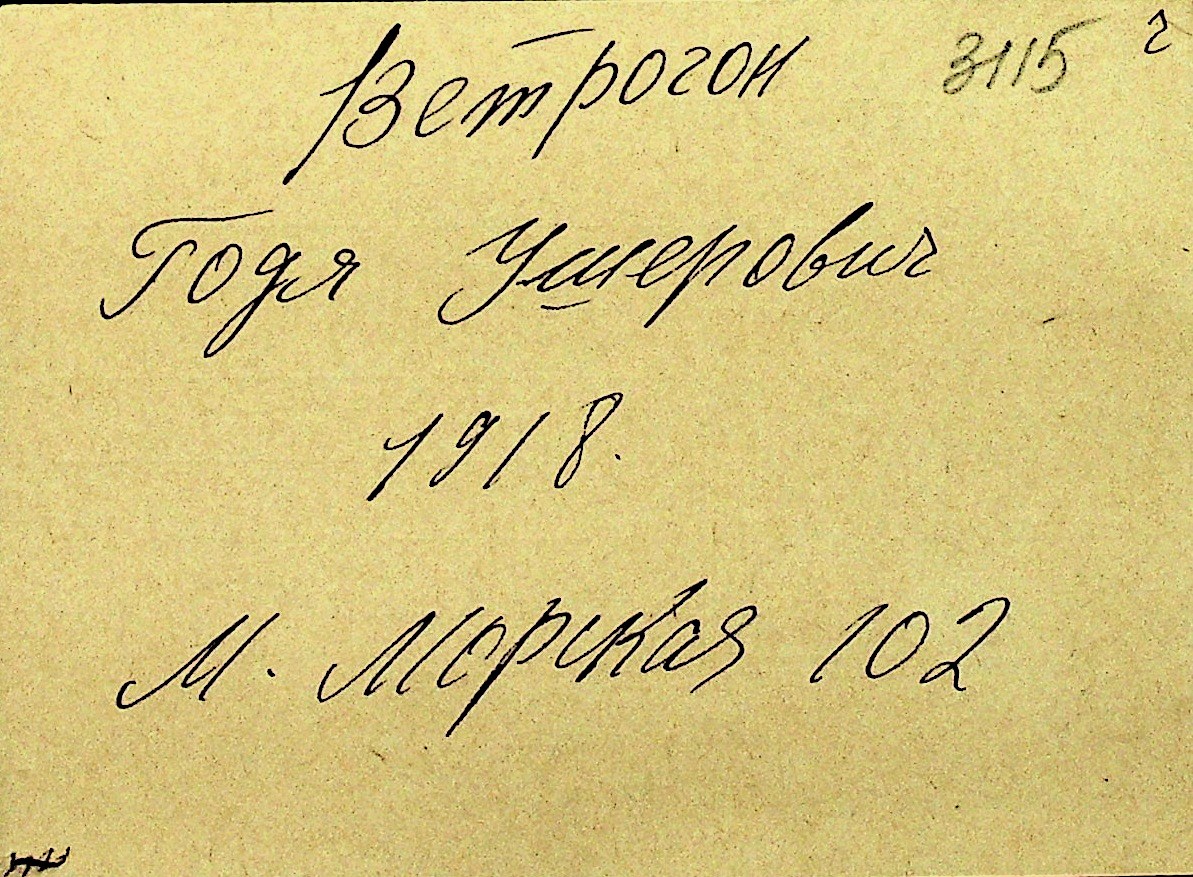 Ветрогон 3115 г
Годя Ушерович
1918.
М. Морская 102